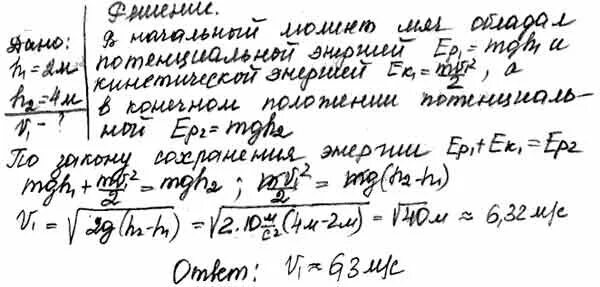 Решение.
Дано:
h₁=2м
h₂=4м
v₁-?
В начальный момент мяч обладал
потенциальной энергией Eр₁=mgh₁ и
кинетической энергией Eк₁=mv₁²/2, а
в конечном положении потенциаль-
ной Eр₂=mgh₂
По закону сохранения энергии Eр₁+Eк₁=Eр₂
mgh₁+mv₁²/2=mgh₂; mv₁²/2=mg(h₂-h₁)
V₁=√2g(h₂-h₁)=√2·10м/с²(4м-2м)=√40м≈6,32м/с
Ответ: V₁≈6,3м/с